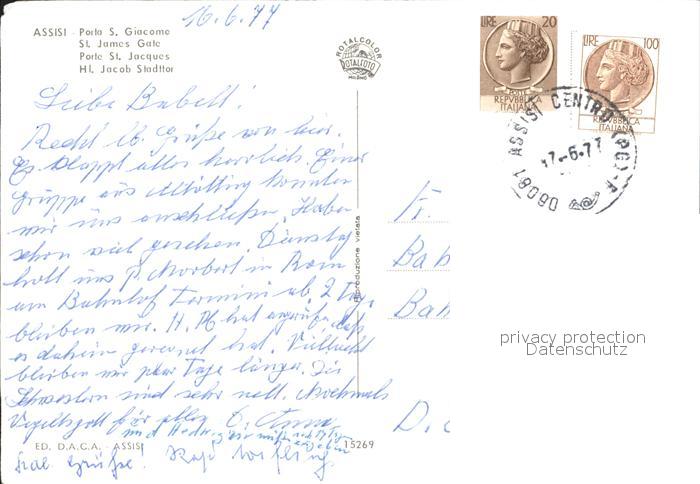 16.6.77
ASSISI - Porta S. Giacomo
St. James Gate
Porte St. Jacques
Hl. Jacob Stadttor
ROTALCOLOR
ROTALFOTO
MILANO
LIRE 20
REPVBBLICA
ITALIANA
LIRE 100
REPVBBLICA
ITALIANA
06081 ASSISI CENTRO (PG)
17-6.77
Liebe Babett!
Recht lb. Grüße von hier.
Es klappt alles herrlich. Einer
Gruppe aus Altötting konnten
wir uns anschließen. Haben
schon viel gesehen. Dienstag
holt uns P. Norbert in Rom
am Bahnhof Termini ab. 2 Tage
bleiben wir. H. H. hat angerufen, daß
es daheim geregnet hat. Vielleicht
bleiben wir paar Tage länger. Die
Schwestern sind sehr nett. Nochmals
Vergeltsgott für alles
Grüße.
Riproduzione vietata
Fr.
Bah
Bah
D.
ED. D.A.C.A. - ASSISI
15269
privacy protection
Datenschutz